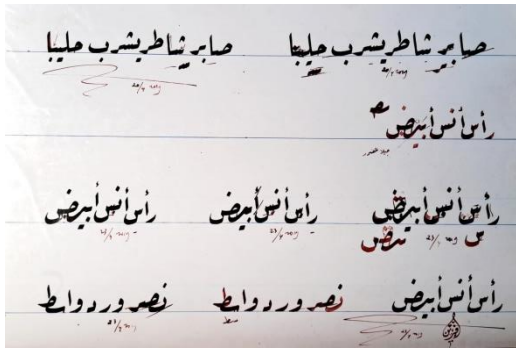 صابر شاطر يشرب حليبا صابر شاطر يشرب حليبا
رأس أنس أبيض
رأس أنس أبيض رأس أنس أبيض رأس أنس أبيض
س ض
رأس أنس أبيض نصر ورد واسط نصر ورد واسط